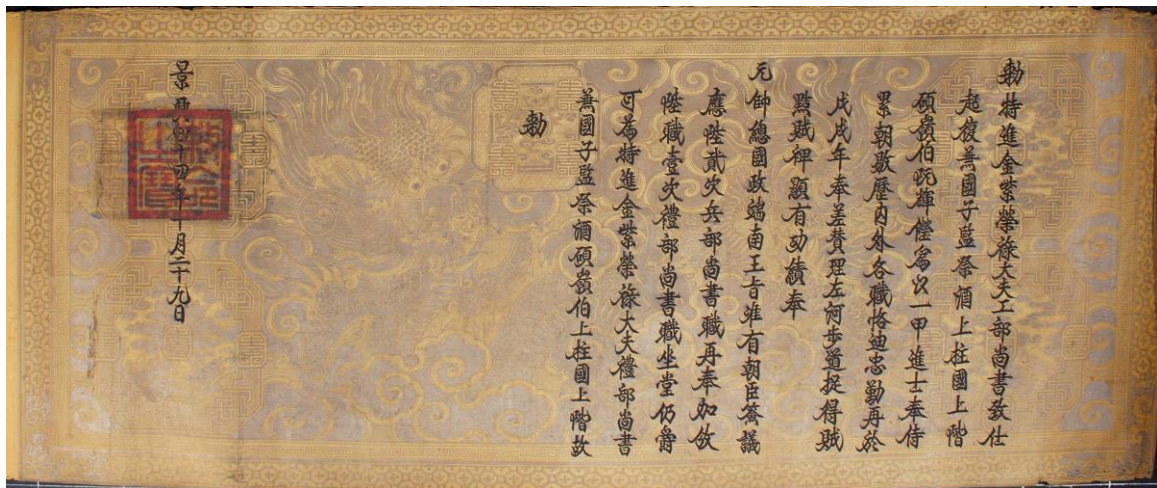 勑特進金紫榮祿大夫工部尚書致仕
起復兼國子監祭酒上柱國上階
碩嶺伯阮輝𠐓爲以一甲進士奉侍
累朝敭歷内外各職恪迪忠勤再於
戊戌年奉差贊理左河步道捉得賊
黟賊裨顯有功績奉
元帥總國政端南王旨準有朝臣僉議
應陞貳次兵部尚書職再奉加敘
陞職壹次禮部尚書職坐堂仍爵
可為特進金紫榮祿大夫禮部尚書
兼國子監祭酒碩嶺伯上柱國上階故
勑
景興四十四年十月二十九日